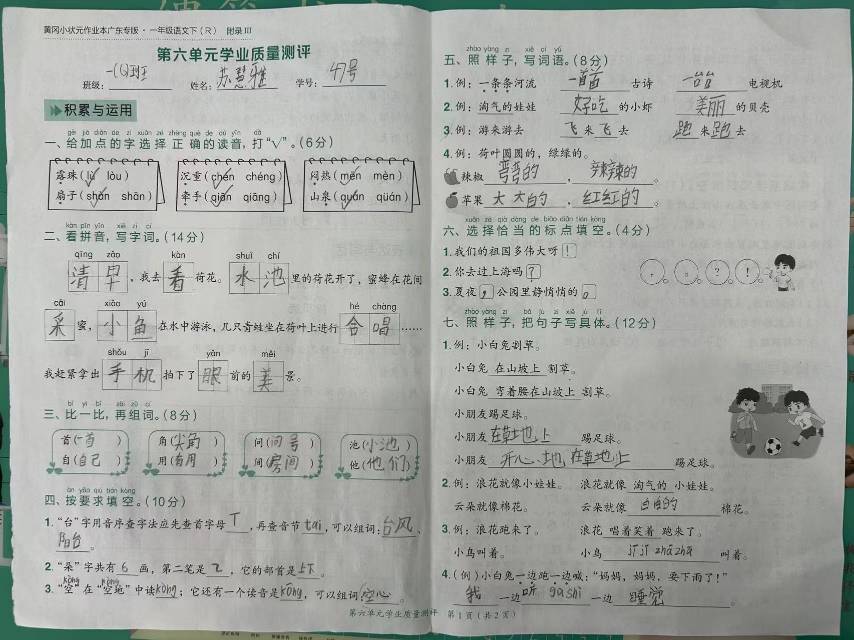 黄冈小状元作业本广东专版·一年级语文下（R） 附录III
第六单元学业质量测评
班级： 姓名：苏慧雅 学号：47号
积累与运用
一、给加点的字选择正确的读音，打“√”。（6分）
露珠（lù lòu） 沉重（chén chéng） 闷热（mēn mèn）
扇子（shàn shān） 牵手（qiān qiāng） 山泉（quán qúan）
二、看拼音，写字词。（14分）
qīng zǎo kàn shuǐ chí
清早，我去看荷花。水池里的荷花开了，蜜蜂在花间
cǎi xiǎo yú hé chàng
采蜜，小鱼在水中游泳，几只青蛙坐在荷叶上进行合唱……
shǒu jī yǎn měi
我赶紧拿出手机拍下了眼前的美景。
三、比一比，再组词。（8分）
首（一首） 角（尖角） 问（问号） 池（小池）
自（自己） 用（有用） 间（房间） 他（他们）
四、按要求填空。（10分）
1.“台”字用音序查字法应先查首字母T，再查音节tái，可以组词：台风、
阳台。
2.“朵”字共有6画，第二笔是㇈，它的部首是
3.“空”在“空地”中读kòng；它还有一个读音是kōng，可以组词空心。
五、照样子，写词语。（8分）
1.例：一条条河流 一首首古诗 一台台电视机
2.例：淘气的娃娃 好吃的小虾 美丽的贝壳
3.例：游来游去 飞来飞去 跑来跑去
4.例：荷叶圆圆的，绿绿的。
辣椒弯弯的，辣辣的。
苹果大大的，红红的。
六、选择恰当的标点填空。（4分）
1.我们的祖国多伟大呀！
2.你去过上海吗？
3.夏夜，公园里静悄悄的。
， 。 ？ ！
七、照样子，把句子写具体。（12分）
1.例：小白兔割草。
小白兔 在山坡上 割草。
小白兔 弯着腰在山坡上 割草。
小朋友踢足球。
小朋友 在草地上 踢足球。
小朋友 开心地在草地上 踢足球。
2.例：浪花就像小娃娃。 浪花就像 淘气的 小娃娃。
云朵就像棉花。 云朵就像 白白的 棉花。
3.例：浪花跑来了。 浪花 唱着笑着 跑来了。
小鸟叫着。 小鸟 叫着。
4.（例）小白兔一边跑一边喊：“妈妈，妈妈，要下雨了！”
我 一边 听 gùshi 一边 睡觉
第六单元学业质量测评 第1页（共2页）